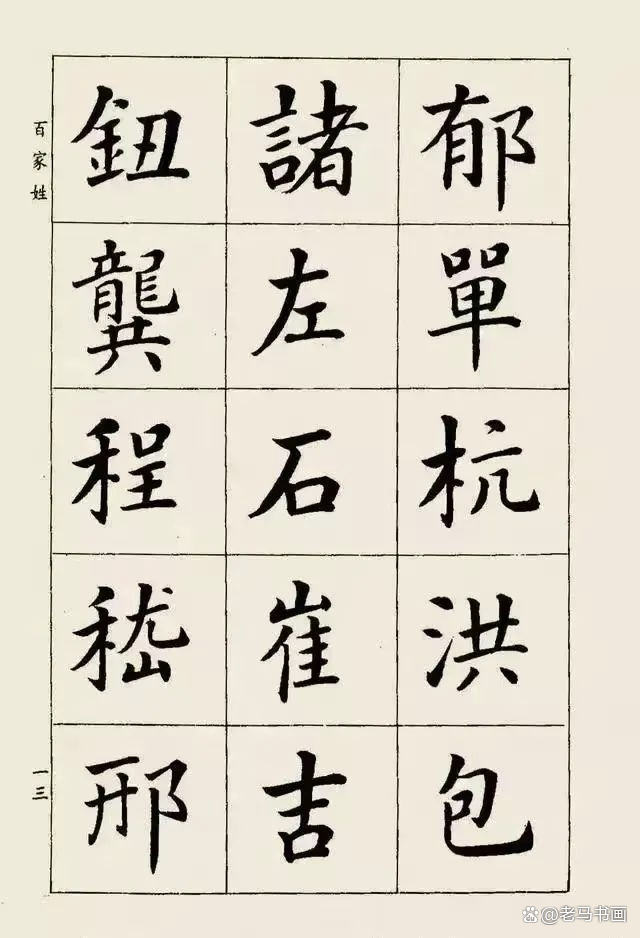 郁單杭洪包
諸左石崔吉
鈕龔程嵇邢
百家姓
一三
老马书画